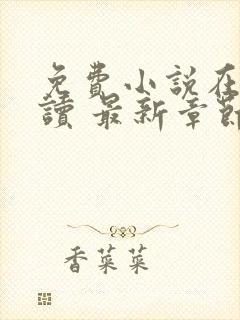 免費小說在
讀 最新章節
香菜菜